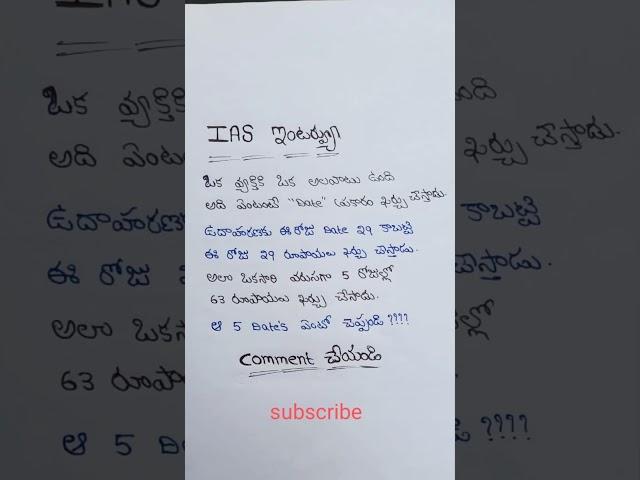 IAS ఇంటర్వ్యూ
ఒక వ్యక్తికి ఒక అలవాటు ఉంది
అది ఏంటంటే "Date" ప్రకారం ఖర్చు చేస్తాడు.
ఉదాహరణకు ఈ రోజు Date 29 కాబట్టి
ఈ రోజు 29 రూపాయలు ఖర్చు చేస్తాడు.
అలా ఒకసారి వరుసగా 5 రోజుల్లో
63 రూపాయలు ఖర్చు చేసాడు.
ఆ 5 Date's ఏంటో చెప్పండి ????
Comment చేయండి
subscribe